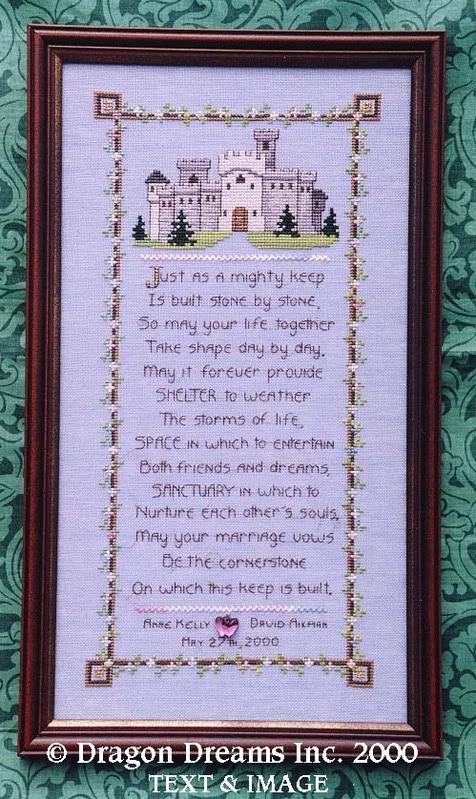 Just as a mighty keep
Is built stone by stone,
So may your life together
Take shape day by day.
May it forever provide
SHELTER to weather
The storms of life,
SPACE in which to entertain
Both friends and dreams,
SANCTUARY in which to
Nurture each other's souls.
May your marriage vows
Be the cornerstone
On which this keep is built.
Anne Kelly David Aikman
May 27th, 2000
© Dragon Dreams Inc. 2000
TEXT & IMAGE